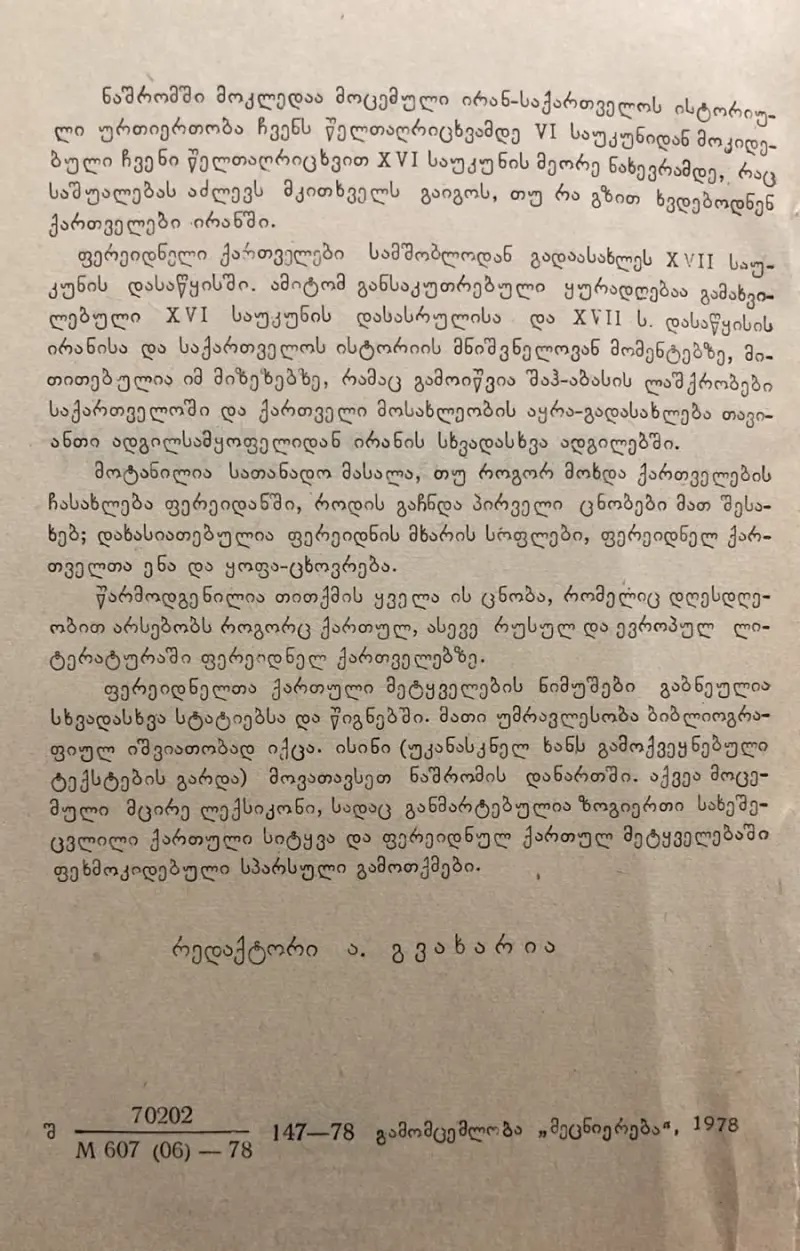 ნაშრომში მოკლედაა მოცემული ირან-საქართველოს ისტორიუ-
ლი ურთიერთობა ჩვენს წელთაღრიცხვამდე VI საუკუნიდან მოკიდე-
ბული ჩვენი წელთაღრიცხვით XVI საუკუნის მეორე ნახევრამდე, რაც
საშუალებას აძლევს მკითხველს გაიგოს, თუ რა გზით ხვდებოდნენ
ქართველები ირანში.
ფერეიდნელი ქართველები სამშობლოდან გადაასახლეს XVII საუ-
კუნის დასაწყისში. ამიტომ განსაკუთრებული ყურადღებაა გამახვი-
ლებული XVI საუკუნის დასასრულისა და XVII ს. დასაწყისის
ირანისა და საქართველოს ისტორიის მნიშვნელოვან მომენტებზე, მი-
თითებულია იმ მიზეზებზე, რამაც გამოიწვია შაჰ-აბასის ლაშქრობები
საქართველოში და ქართველი მოსახლეობის აყრა-გადასახლება თავი-
ანთი ადგილსამყოფელიდან ირანის სხვადასხვა ადგილებში.
მოტანილია სათანადო მასალა, თუ როგორ მოხდა ქართველების
ჩასახლება ფერეიდანში, როდის გაჩნდა პირველი ცნობები მათ შესა-
ხებ; დახასიათებულია ფერეიდნის მხარის სოფლები, ფერეიდნელ ქარ-
თველთა ენა და ყოფა-ცხოვრება.
წარმოდგენილია თითქმის ყველა ის ცნობა, რომელიც დღესდღე-
ობით არსებობს როგორც ქართულ, ასევე რუსულ და ევროპულ ლი-
ტერატურაში ფერეიდნელ ქართველებზე.
ფერეიდნელთა ქართული მეტყველების ნიმუშები გაბნეულია
სხვადასხვა სტატიებსა და წიგნებში. მათი უმრავლესობა ბიბლიოგრა-
ფიულ იშვიათობად იქცა. ისინი (უკანასკნელ ხანს გამოქვეყნებული
ტექსტების გარდა) მოვათავსეთ ნაშრომის დანართში. აქვეა მოცე-
მული მცირე ლექსიკონი, სადაც განმარტებულია ზოგიერთი სახეშე-
ცვლილი ქართული სიტყვა და ფერეიდნულ ქართულ მეტყველებაში
ფეხმოკიდებული სპარსული გამოთქმები.
რედაქტორი ა. გვახარია
შ 70202
M 607 (06) — 78 147—78 გამომცემლობა „მეცნიერება“, 1978